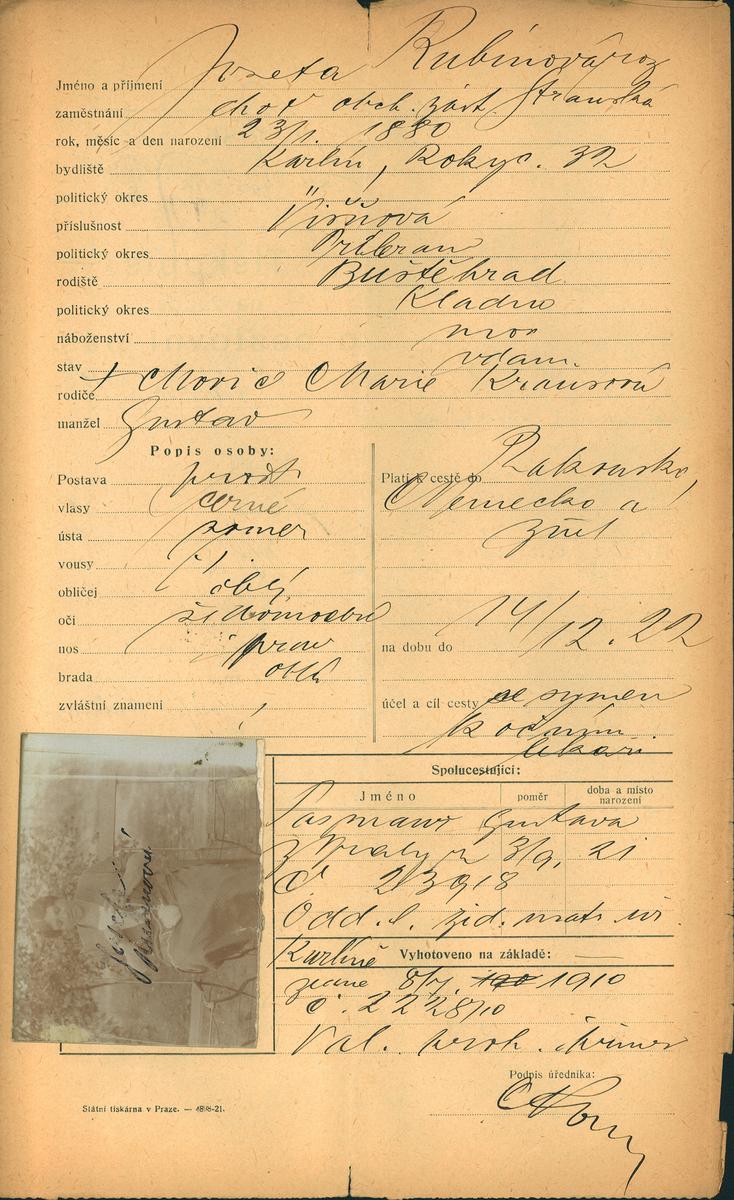 Jméno a příjmení Josefa Rubínová roz
zaměstnání choť obch. zást. Stranská
rok, měsíc a den narození 23/1. 1880
bydliště Karlín, Rokyc. 32
politický okres "
příslušnost Višňová
politický okres Příbram
rodiště Buštěhrad
politický okres Kladno
náboženství mos
stav vdam.
rodiče + Moric Marie Krausová
manžel Gustav
Popis osoby:
Postava prostř
vlasy černé
ústa soumer
vousy /
obličej oblý
oči šedomodré
nos prav
brada oblá
zvláštní znamení /
Platí k cestě do Rakouska,
Německo a
zpět
na dobu do 14/12. 22
účel a cíl cesty se synem
k očním
lékaři
Spolucestující:
Jméno poměr doba a místo narození
Pas manž Gustava
z Prahy z 3/9. 21
č 23918
Odd. l. žid. matr. úř.
Karlíně Vyhotoveno na základě:
ze dne 8/7. 1910
č. 2228/10
Val.
Podpis úředníka:
Státní tiskárna v Praze. — 4898-21.
Josefa
Rubínová